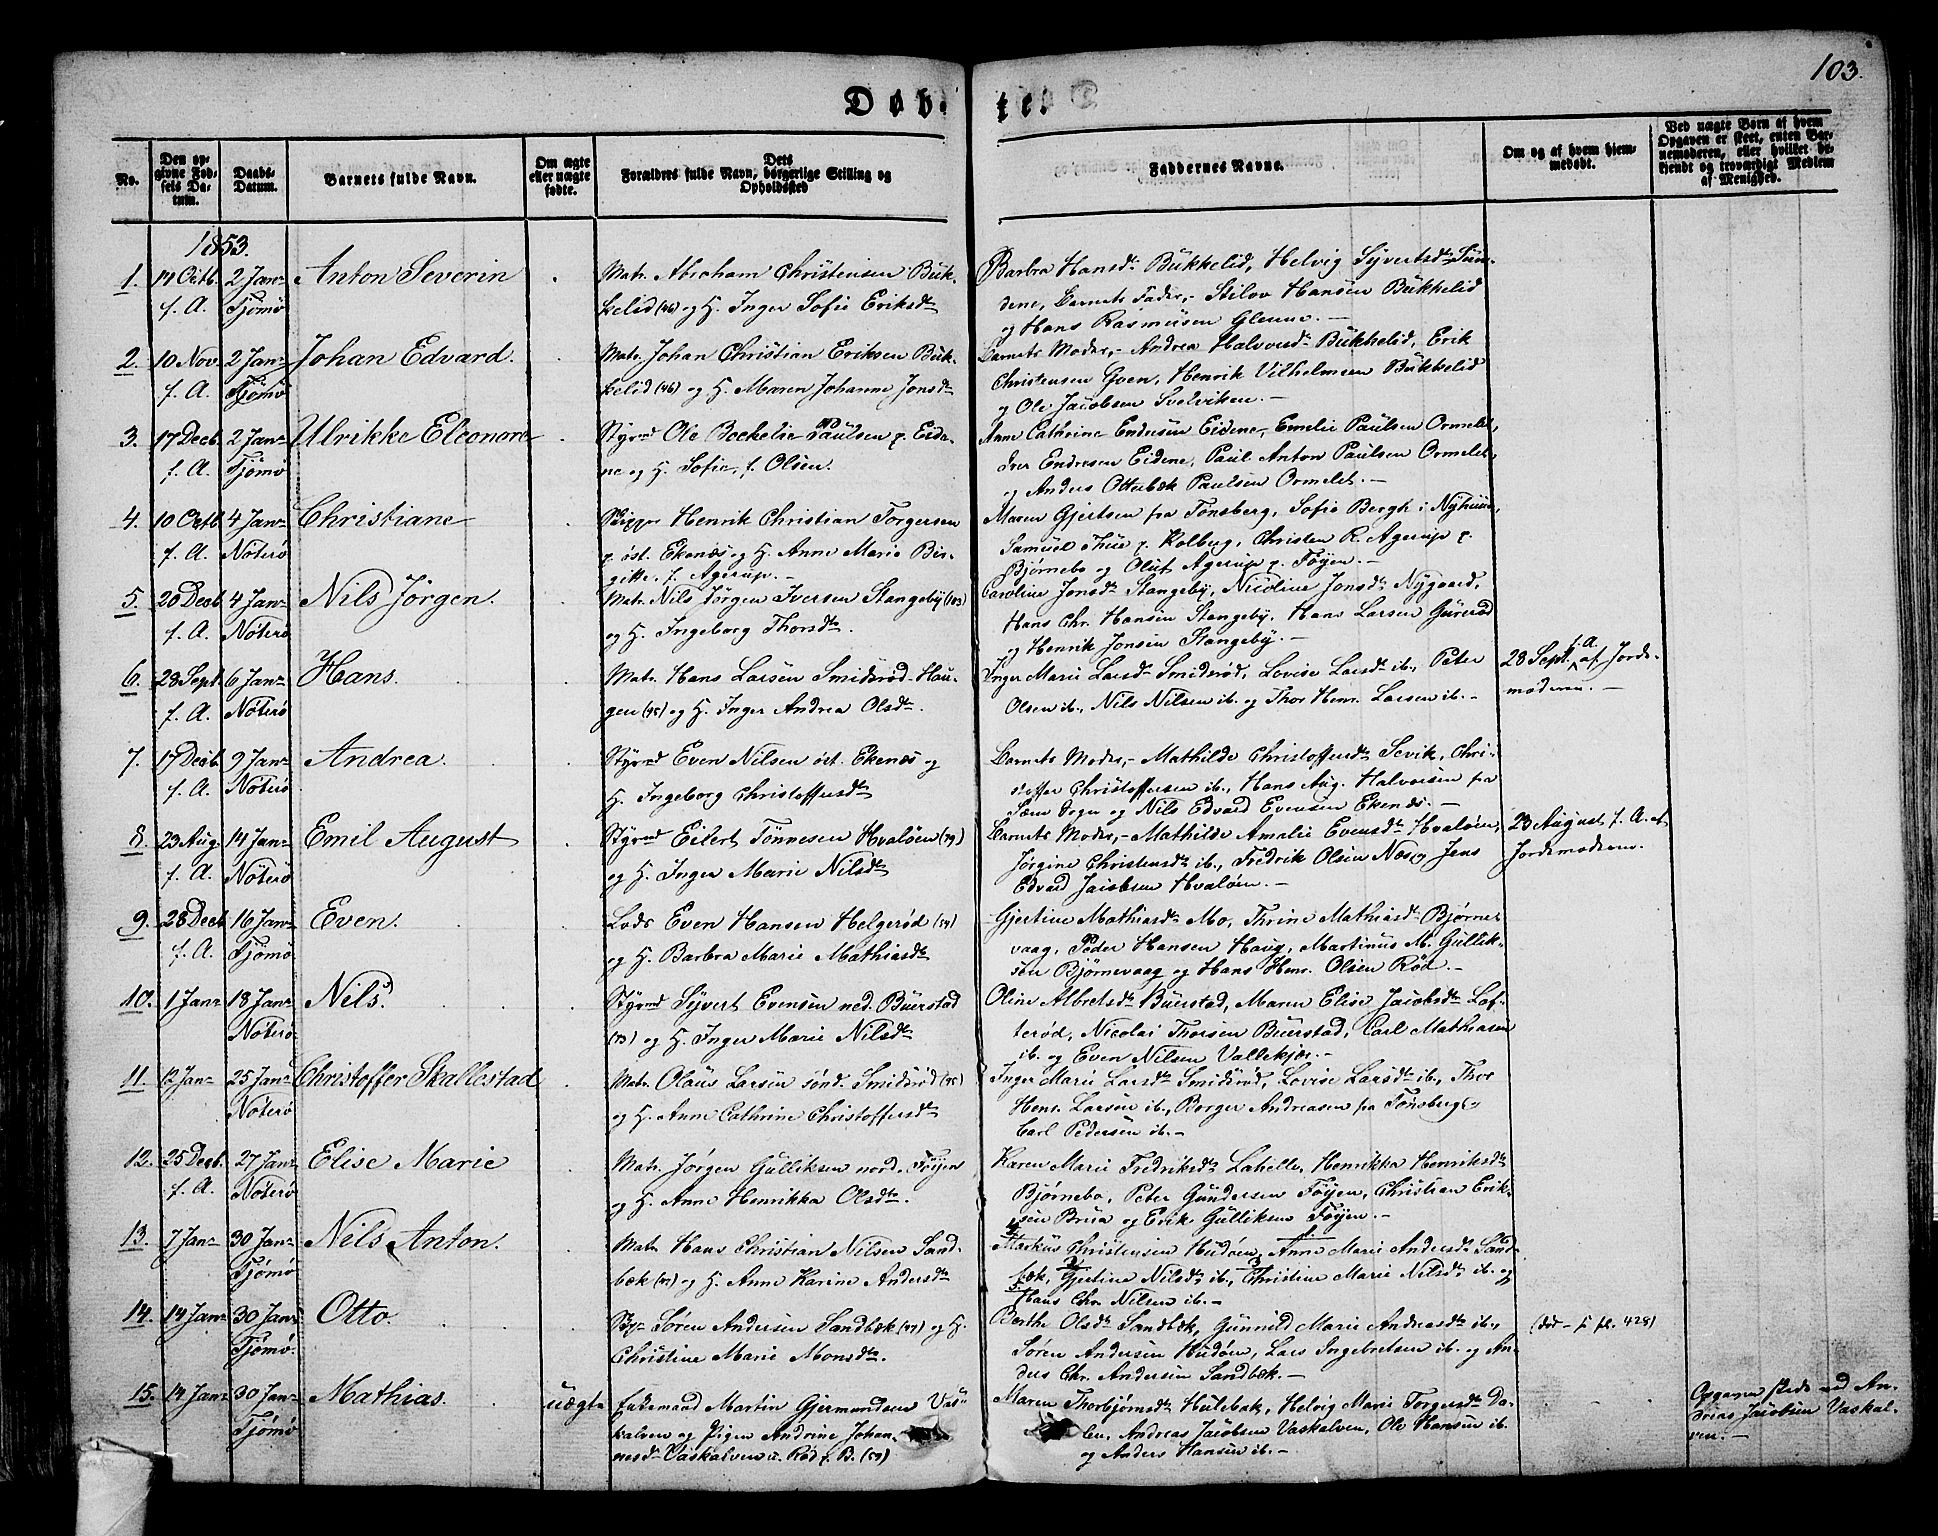 103.
Døb-
te.
No.
Den op-
givne Fød-
sels Da-
tum.
Daabs-
Datum.
Barnets fulde Navn.
Om ægte
eller uægte
fødte.
Dets
Forældres fulde Navn, borgerlige Stilling og
Opholdssted
Faddernes Navne.
Om og af hvem hjem-
medøbt.
Ved uægte Børn af hvem
Opgaven er skeet, enten Bar-
nemoderen, eller hvilket be-
kjendt og troværdigt Medlem
af Menighed.
1853.
1. 14 Octb. f. A. 2 Janr Tjömö Anton Severin
Matr. Abraham Christensen Bük-
kelid (46) og H. Inger Sofie Eriksdtr
Barbra Hansdtr Bükkelid, Helvig Syvertsdtr Sün-
dene, Barnets Fader, Hansen Bükkelid
og Hans Rasmüsen Glenne. –
2. 10 Nov. f. A. 2 Janr Tjömö Johan Edvard.
Matr. Johan Christian Eriksen Bük-
kelid (46) og H. Maren Johanne Jonsdtr
Barnets Moder, – Andrea Halvorsdtr Bükkelid, Erik
Christensen Goen, Henrik Vilhelmsen Bükkelid
og Ole Jacobsen Svelviken. –
3. 17 Decb. f. A. 2 Janr Tjömö Ulrikke Eleonore
Styrmd Ole Bockelie Paulsen p. Eide-
ne og H. Sofie, f. Olsen.
Anne Cathrine Endersen Eidene, Emelie Paulsen Ormelet,
Iver Endresen Eidene, Paul Anton Paulsen Ormelet,
og Anders Otterbæk Paulsen Ormelet. –
4. 10 Octb. f. A. 4 Janr Nöterö Christiane
Skipper Henrik Christian Torgersen
p. öst. Ekenæs og H. Anne Marie Bir-
gitte, f. Agerup. –
Maren Gjertsen fra Tönsberg, Sofie Bergh i Nyhüus,
Samüel Thue p. Kolberg, Christen R. Agerup p.
Björnebo og Oluf Agerup p. Föyen. –
5. 20 Decb. f. A. 4 Janr Nöterö Nils Jörgen.
Matr. Nils Jörgen Iversen Stangeby (103)
og H. Ingeborg Thorsdtr.
Caroline Jonsdtr Stangeby, Nicoline Jonsdtr Nygaard,
Hans Chr. Hansen Stangeby, Hans Larsen
og Henrik Jonsen Stangeby. –
6. 28 Sept. f. A. 6 Janr Nöterö Hans.
Matr. Hans Larsen Smidsröd-Hau-
gen (75) og H. Inger Andrea Olsdtr.
Inger Marie Larsdtr Smidsröd, Lovise Larsdtr ib., Peter
Olsen ib., Nils Nilsen ib. og Thor Henr. Larsen ib. –
28 Sept. f. A. af Jorde-
moderen. –
7. 17 Decb. f. A. 9 Janr Nöterö Andrea.
Styrmd Even Nilsen öst. Ekenæs og
H. Ingeborg Christoffersdtr
Barnets Moder, – Mathilde Christoffersdtr Sevik, Chri-
stoffer Christoffersen ib., Hans Aug. Halvorsen fra
Sæm Sogn og Nils Edvard Evensen Ekenæs. –
8. 23 Aug. f. A. 14 Janr Nöterö Emil August
Styrmd Eilert Tönnesen Hvalöen (79)
og H. Inger Marie Nilsdtr
Barnets Moder, – Mathilde Amalie Evensdtr Hvalöen,
Jörgine Christensdtr ib., Fredrik Olsen Næs og Jens
Edvard Jacobsen Hvalöen. –
23 August f. A. af
Jordemoderen.
9. 28 Decb. f. A. 16 Janr Tjömö Even.
Lods Even Hansen Helgeröd (59)
og H. Barbra Marie Mathiasdtr
Gjertine Mathiasdtr Mo, Thrine Mathiasdtr Björne-
vaag, Peder Hansen Haug, Martinus M. Gullik-
sen Björnevaag og Hans Henr. Olsen Röd. –
10. 1 Janr 18 Janr Nöterö Nils.
Styrmd Syvert Evensen ned. Büerstad
(73) og H. Inger Marie Nilsdtr
Oline Albretsdtr Büerstad, Maren Elise Jacobsdtr Lof-
teröd, Nicolai Thorsen Büerstad, Carl Mathiasen
ib. og Even Nilsen Vallekjær. –
11. 12 Janr 25 Janr Nöterö Christoffer Skallestad
Matr. Olaus Larsen sönd. Smidsröd (75)
og H. Anne Cathrine Christoffersdtr
Inger Marie Larsdtr Smidsröd, Lovise Larsdtr ib., Thor
Henr. Larsen ib., Borger Andreasen fra Tönsberg,
Carl Pedersen ib. –
12. 25 Decb. f. A. 27 Janr Nöterö Elise Marie
Matr. Jörgen Gülliksen nord. Föyen
og H. Anne Henrikka Olsdtr.
Karen Marie Fredriksdtr Lahelle, Henrikka Henriksdtr
Björnebo, Peter Gundersen Föyen, Christian Erik-
sen Brua og Erik Gülliksen Föyen. –
13. 7 Janr 30 Janr Tjömö Nils Anton.
Matr. Hans Christian Nilsen Sand-
bæk (47) og H. Anne Karine Andersdtr
Markus Christensen Hudöen, Anne Marie Andersdtr Sand-
bæk, Gjertine Nilsdtr ib., Christine Marie Nilsdtr ib. og
Hans Chr. Nilsen ib. –
14. 14 Janr 30 Janr Tjömö Otto.
Sören Andersen Sandbæk (47) og H.
Christine Marie Monsdtr.
Berthe Olsdtr Sandbæk, Gunnild Marie Andreasdtr ib.,
Sören Andersen Hudöen, Lars Ingebretsen ib. og An-
ders Chr. Andersen Sandbæk. –
(död – s. pl. 428)
15. 14 Janr 30 Janr Tjömö Mathias. uægte
Enkemand Martin Gjermundsen Vas-
kalven og Pigen Andrine Johan-
nesdtr Vaskalven u. Röd p. B. (59)
Maren Thorbjörnsdtr Hulebak, Helvig Marie Torgersdtr Da-
len, Andreas Jacobsen Vaskalven, Ole Hansen ib.
og Anders Hansen ib. –
Opgaven skede ved An-
dreas Jacobsen Vaskal-
ven. –